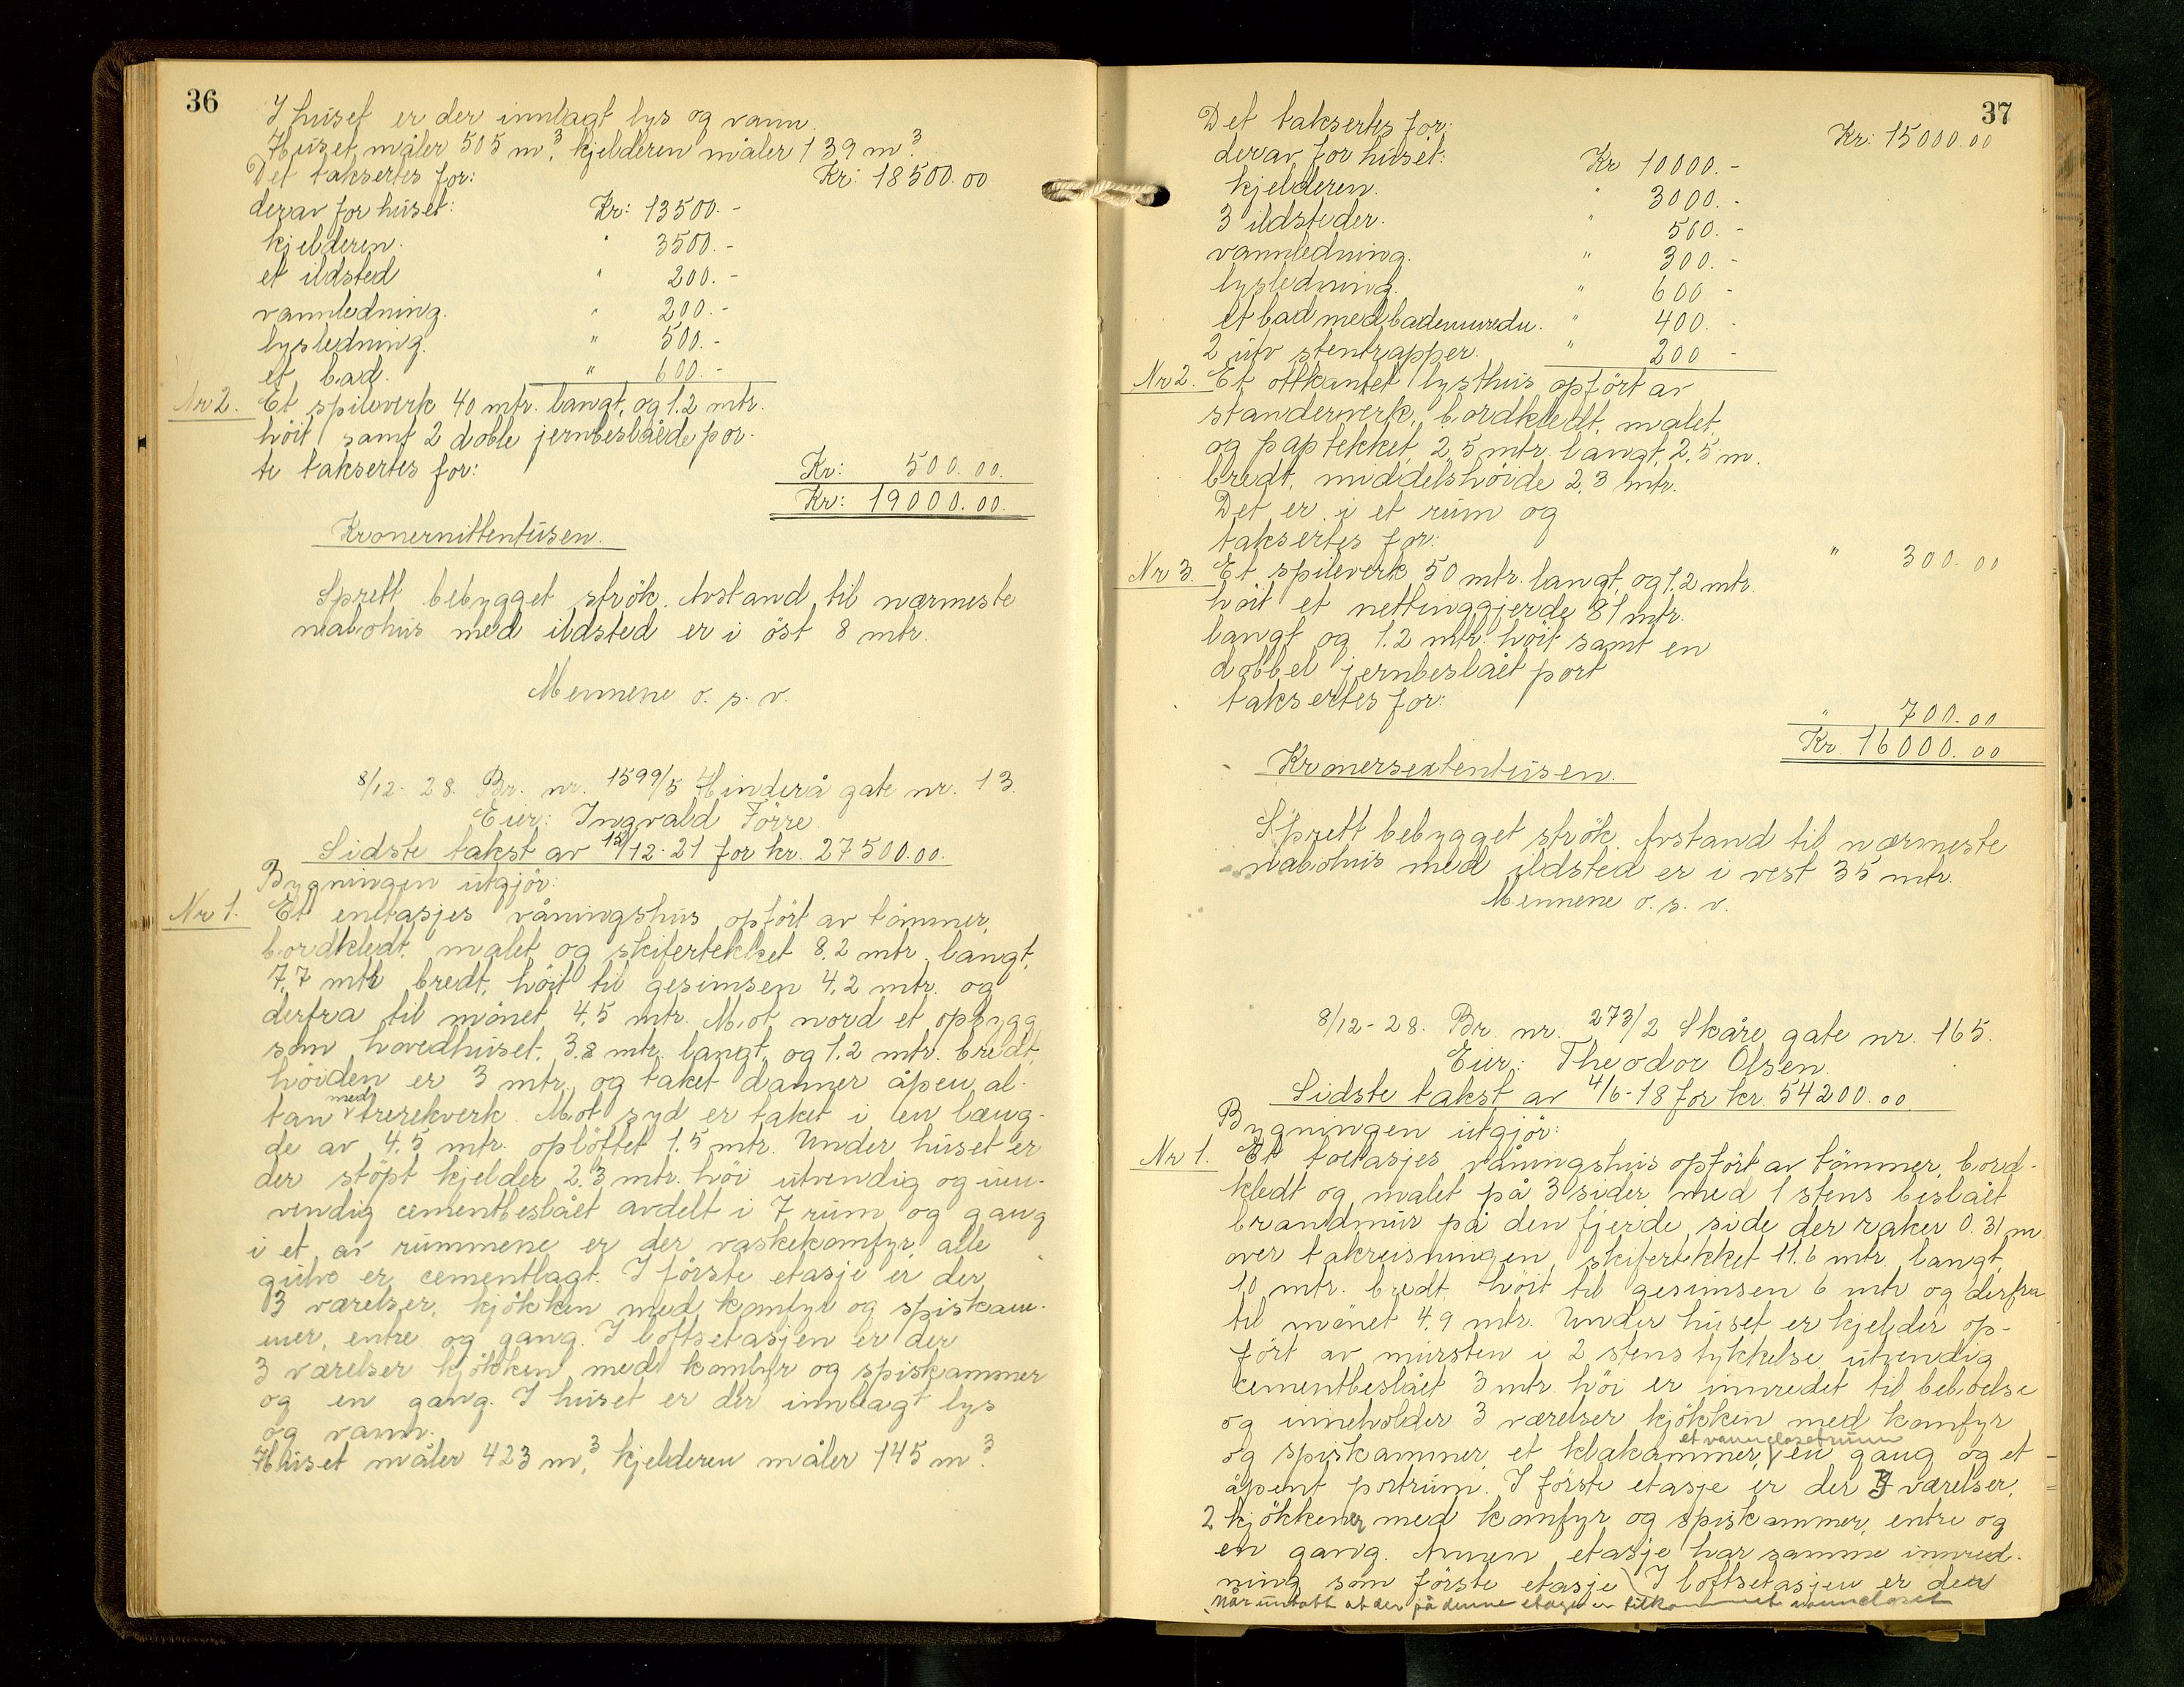 36
I huset er der innlagt lys og vann.
Huset måler 505 m³, kjelderen måler 139 m³.
Det taksertes for: Kr: 18500.00
derav for huset: Kr: 13500.-
kjelderen. " 3500.-
et ildsted " 200.-
vannledning. " 200.-
lysledning. " 500.-
et bad. " 600.-
Nr 2. Et spileverk 40 mtr. langt, og 1.2 mtr.
höit samt 2 doble jernbeslåede por-
te taksertes for: Kr: 500.00.
Kr: 19000.00.
Kronernittentusen.
Spredt bebygget strök. Avstand til nærmeste
nabohus med ildsted er i öst 8 mtr.
Mennene o. s. v.
8/12-28. Br. nr. 1599/5 Hinderå gate nr. 13.
Eier: Ingvald Förre
Sidste takst av 15/12-21 for kr. 27500.00.
Bygningen utgjör:
Nr 1. Et enetasjes våningshus opfört av tömmer,
bordkledt, malet og skifertekket 8.2 mtr. langt,
7.7 mtr bredt, höit til gesimsen 4.2 mtr. og
derfra til mönet 4.5 mtr. Mot nord et opbygg
som hovedhuset, 3.8 mtr. langt, og 1.2 mtr. bredt,
höiden er 3 mtr. og taket danner åpen al-
tan med trerekverk. Mot syd er taket i en læng-
de av 4.5 mtr. oplöftet 1.5 mtr. Under huset er
der stöpt kjelder 2.3 mtr. höi utvendig og inn-
vendig cementbeslået avdelt i 7 rum og gang
i et av rummene er der vaskekomfyr, alle
gulve er cementlagt. I förste etasje er der
3 værelser, kjökken med komfyr og spiskam-
mer, entre og gang. I loftsetasjen er der
3 værelser kjökken med komfyr og spiskammer
og en gang. I huset er der innlagt lys
og vann.
Huset måler 423 m³, kjelderen måler 145 m³.
37
Det taksertes for: Kr: 15000.00
derav for huset: Kr 10000.-
kjelderen. " 3000.-
3 ildsteder. " 500.-
vannledning. " 300.-
lysledning. " 600 -
et bad med badeinnredn. " 400. -
2 utv stentrapper. " 200 -
Nr 2. Et ottkantet lysthus opfört av
standerverk, bordkledt, malet,
og paptekket, 2.5 mtr. langt, 2.5 m.
bredt, middelshöide 2.3 mtr.
Det er i et rum og
taksertes for: " 300.00
Nr 3. Et spileverk 50 mtr. langt, og 1.2 mtr.
höit et nettinggjerde 81 mtr.
langt og 1.2 mtr. höit samt en
dobbel jernbeslået port
taksertes for: " 700.00
Kr. 16000.00
Kronersekstentusen.
Spredt bebygget strök. Avstand til nærmeste
nabohus med ildsted er i vest 35 mtr.
Mennene o. s. v.
8/12-28. Br. nr. 273/2 Skåre gate nr. 165.
Eier: Theodor Olsen.
Sidste takst av 4/6-18 for kr. 54200.00
Bygningen utgjör:
Nr 1. Et toetasjes våningshus opfört av tömmer, bord-
kledt og malet på 3 sider med 1 stens beslået
brandmur på den fjerde side der raker 0.31 m.
over takreisningen, skifertekket 11.6 mtr. langt,
10 mtr. bredt, höit til gesimsen 6 mtr og derfra
til mönet 4.9 mtr. Under huset er kjelder op-
fört av mursten i 2 stens tykkelse utvendig
cementbeslået 3 mtr höi er innredet til beboelse
og inneholder 3 værelser kjökken med komfyr
og spiskammer, et klækammer, et vannclosetrum en gang og et
åpent portrum. I förste etasje er der værelser,
2 kjökkener med komfyr og spiskammer, entre og
en gang. Annen etasje har samme innred-
ning som förste etasje I loftsetasjen er der
når untatt at der på denne etage er tilkommet vanncloset